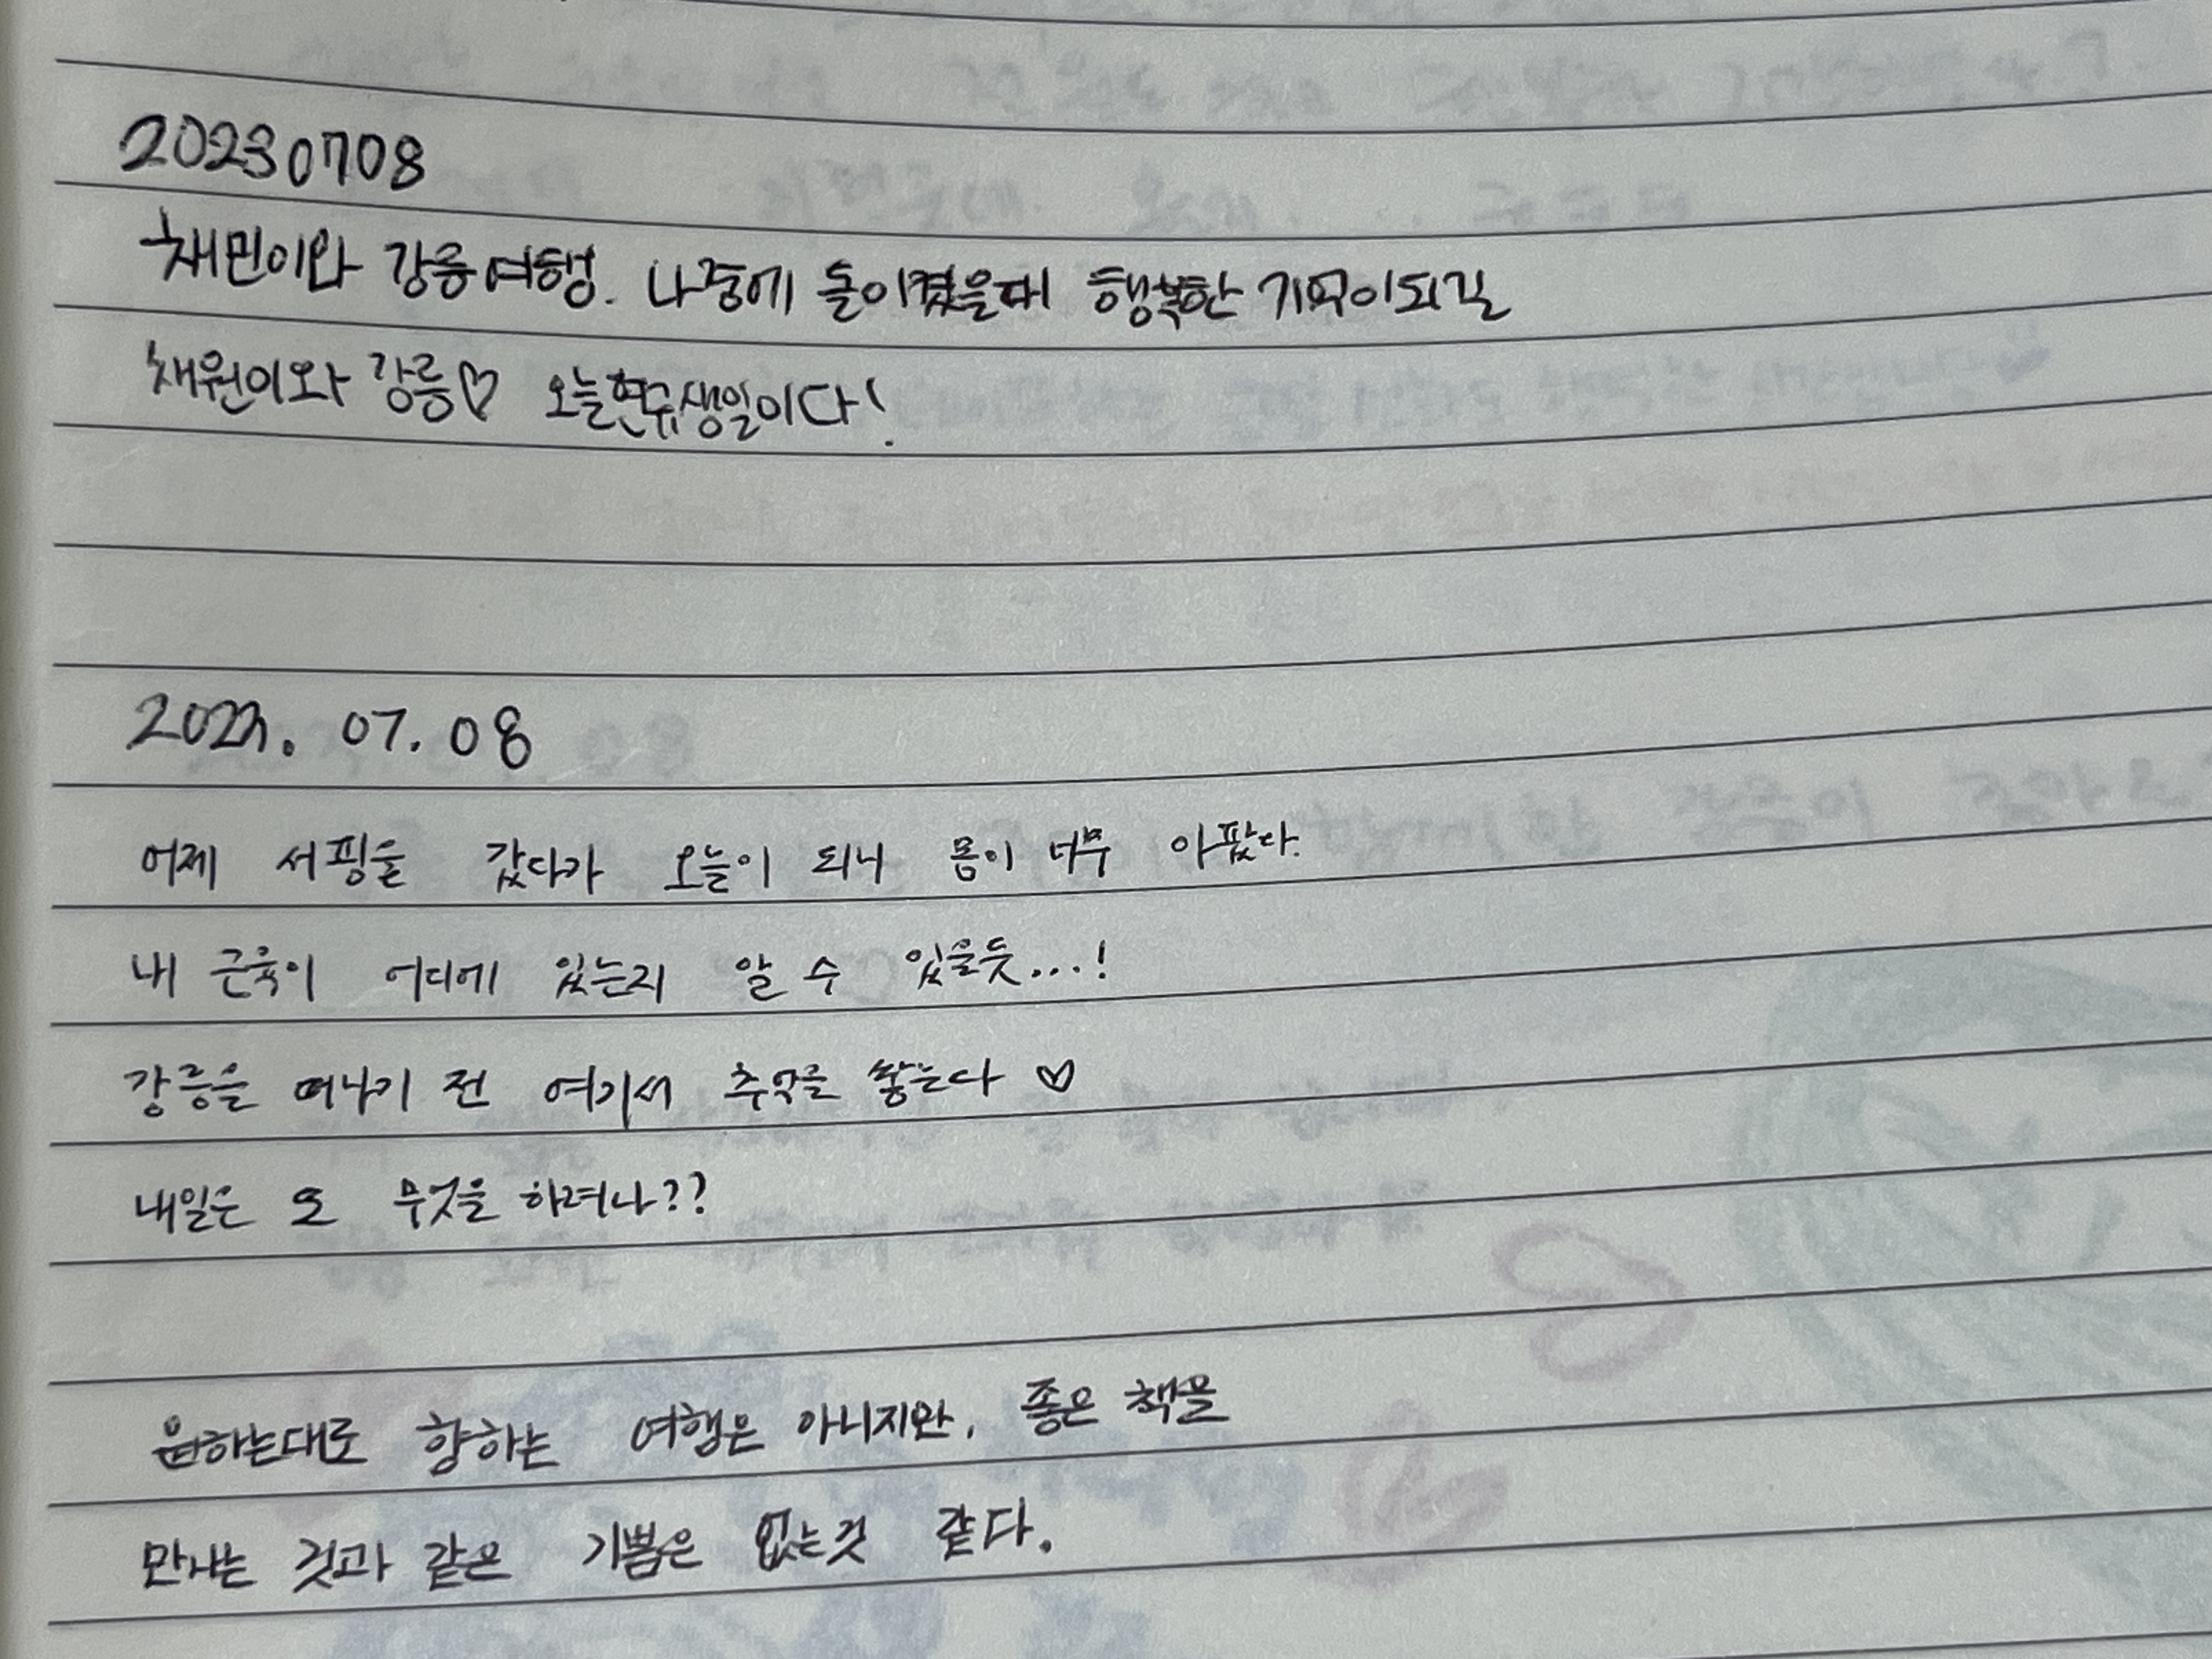 20230708
채민이와 강릉여행. 나중에 돌이켰을때 행복한 기억이되길
채원이와 강릉♡ 오늘현규생일이다!
2023. 07. 08
어제 서핑을 갔다가 오늘이 되니 몸이 너무 아팠다.
내 근육이 어디에 있는지 알 수 있을듯...!
강릉을 떠나기 전 여기서 추억을 쌓는다 ♡
내일은 또 무엇을 하려나??
원하는대로 향하는 여행은 아니지만, 좋은 책을
만나는 것과 같은 기쁨은 없는것 같다.